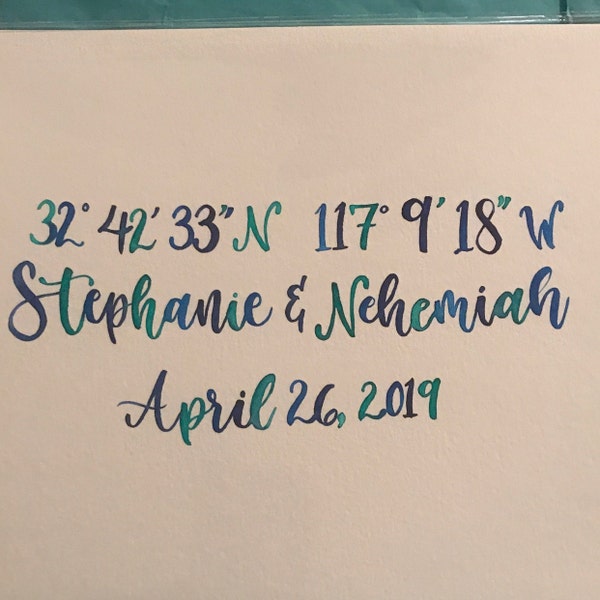 32° 42' 33" N 117° 9' 18" W
Stephanie & Nehemiah
April 26, 2019